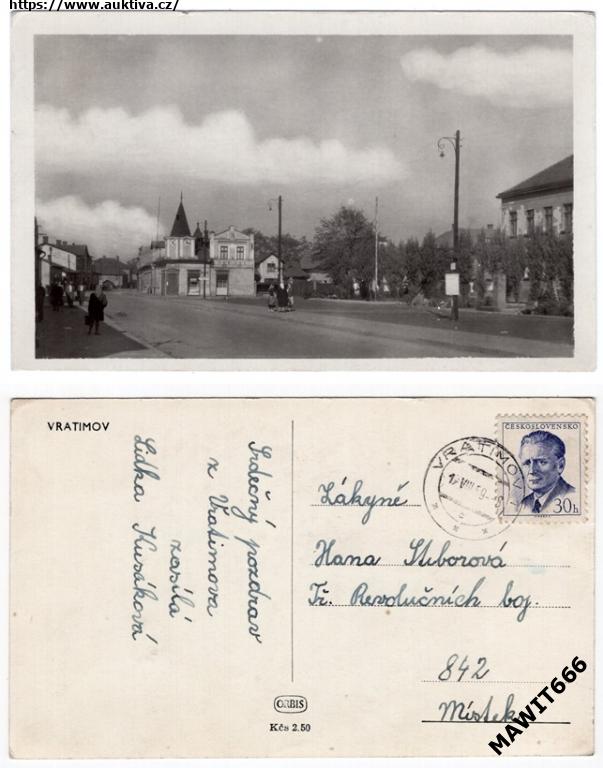 https://www.auktiva.cz/
VRATIMOV
Srdečný pozdrav
z Vratimova
zasílá
Lidka Kusáková
VRATIMOV
ČESKOSLOVENSKO
30h
Žákyně
Hana Stiborová
Tř. Revolučních boj.
842
Místek
ORBIS
Kčs 2.50
MAWIT666